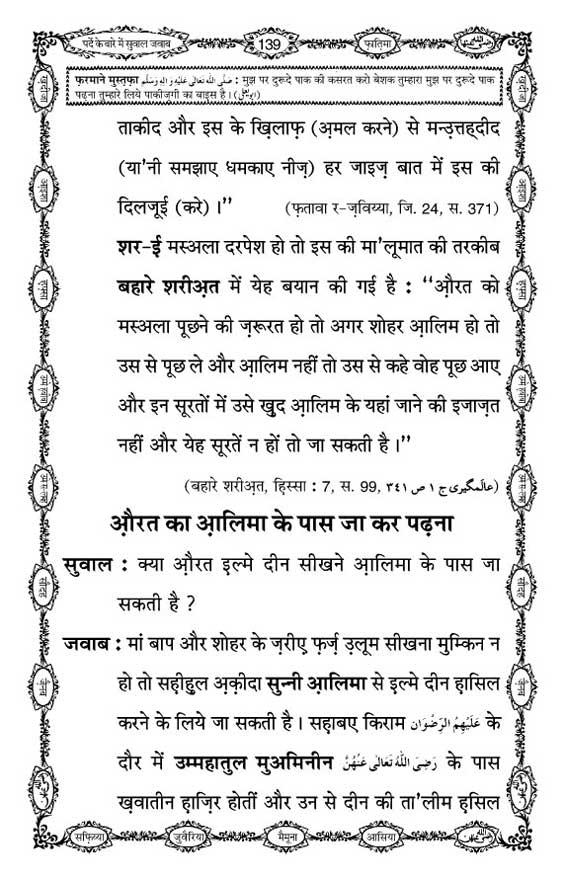 पर्दे के बारे में सुवाल जवाब
139
फ़ातिमा
फ़रमाने मुस्तफ़ा صَلَّى اللهُ تَعَالٰى عَلَيْهِ وَاٰلِهٖ وَسَلَّم : मुझ पर दुरूदे पाक की कसरत करो बेशक तुम्हारा मुझ पर दुरूदे पाक
पढ़ना तुम्हारे लिये पाकीज़गी का बाइस है। (ابویعلی)
ताकीद और इस के ख़िलाफ़ (अ़मल करने) से मन्उ़त्तह्दीद
(या'नी समझाए धमकाए नीज़) हर जाइज़ बात में इस की
दिलजूई (करे) ।”
(फ़तावा र-ज़विय्या, जि. 24, स. 371)
शर-ई मस्अला दरपेश हो तो इस की मा'लूमात की तरकीब
बहारे शरीअ़त में येह बयान की गई है : “औ़रत को
मस्अला पूछने की ज़रूरत हो तो अगर शोहर आ़लिम हो तो
उस से पूछ ले और आ़लिम नहीं तो उस से कहे वोह पूछ आए
और इन सूरतों में उसे ख़ुद आ़लिम के यहां जाने की इजाज़त
नहीं और येह सूरतें न हों तो जा सकती है।”
(बहारे शरीअ़त, हिस्सा : 7, स. 99, عالمگیری ج ١ ص ٣٤١)
औ़रत का आ़लिमा के पास जा कर पढ़ना
सुवाल : क्या औ़रत इल्मे दीन सीखने आ़लिमा के पास जा
सकती है ?
जवाब : मां बाप और शोहर के ज़रीए फ़र्ज़ उ़लूम सीखना मुम्किन न
हो तो सह़ीह़ुल अ़क़ीदा सुन्नी आ़लिमा से इल्मे दीन ह़ासिल
करने के लिये जा सकती है। सह़ाबए किराम عَلَيْهِمُ الرِّضْوَان के
दौर में उम्महातुल मुअमिनीन رَضِىَ اللهُ تَعَالٰى عَنْهُنَّ के पास
ख़वातीन ह़ाज़िर होतीं और उन से दीन की ता'लीम ह़सिल
सफ़िय्या
जुवैरिया
मैमूना
आसिया